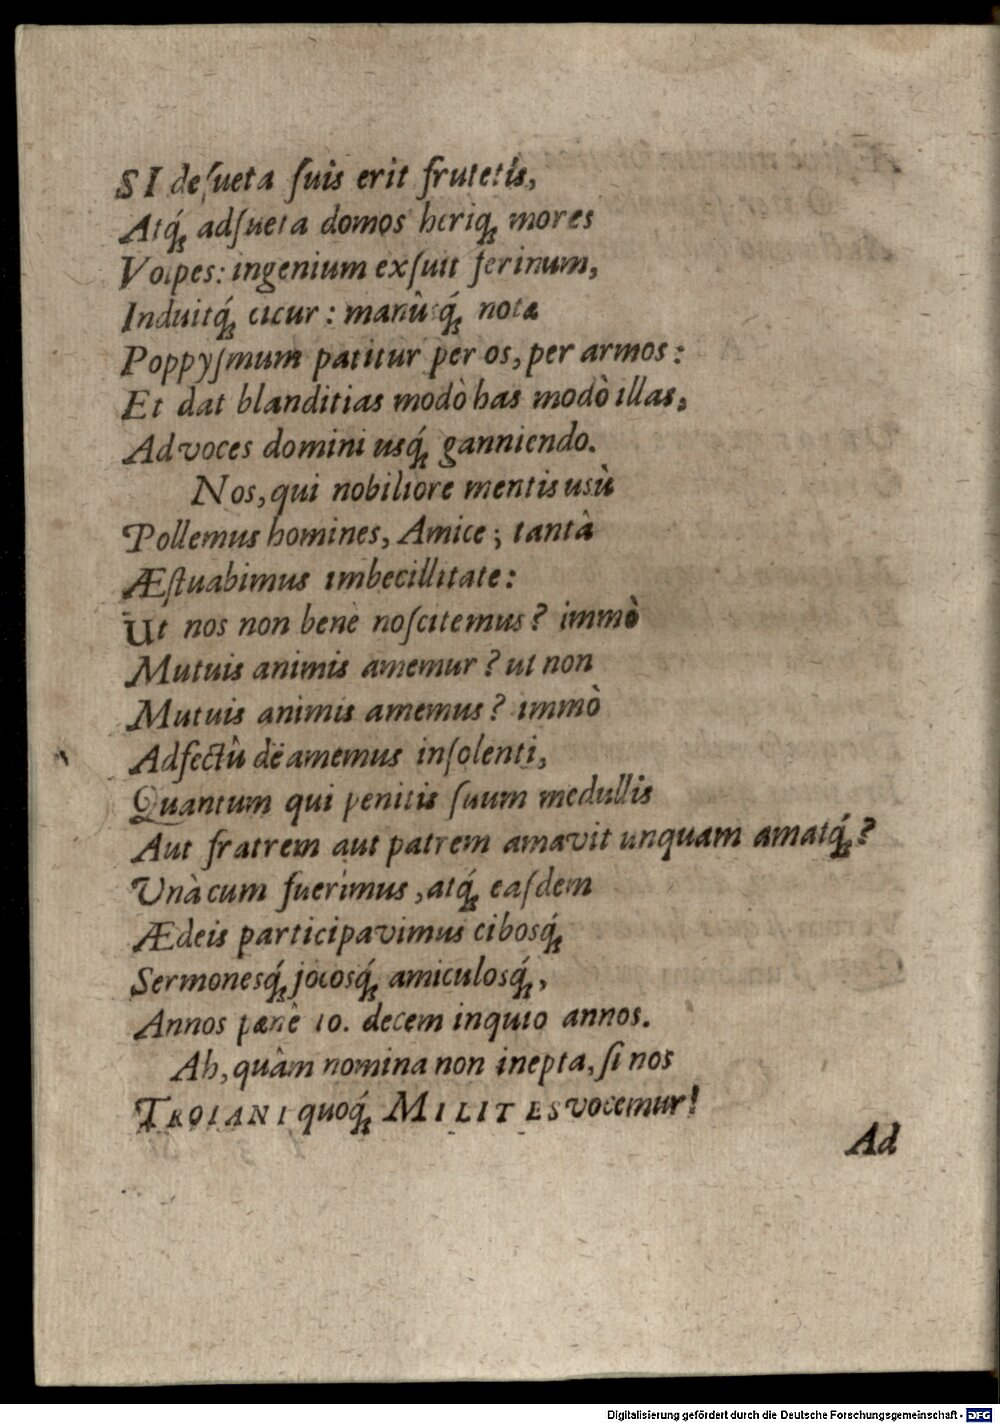 SI deſueta ſuis erit frutetis,
Atq́; adſueta domos heriq; mores
Volpes: ingenium exſuit ferinum,
Induitq́; cicur: manûsq́; notæ
Poppyſmum patitur per os, per armos:
Et dat blanditias modò has modò illas,
Ad voces domini usq́; ganniendo.
Nos, qui nobiliore mentis usù
Pollemus homines, Amice; tantâ
Æſtuabimus imbecillitate:
Ut nos non benè noſcitemus? immò
Mutuis animis amemur? ut non
Mutuis animis amemus? immò
Adfectû dëamemus inſolenti,
Quantum qui penitis ſuum medullis
Aut fratrem aut patrem amavit unquam amatq́;?
Unà cum fuerimus, atq́; eaſdem
Ædeis participavimus cibosq́;
Sermonesq́; jocosq́; amiculosq́;,
Annos pænè 10. decem inquio annos.
Ah, quàm nomina non inepta, ſi nos
TROIANI quoq́; MILITES vocemur!
Ad
Digitalisierung gefördert durch die Deutsche Forschungsgemeinschaft - DFG